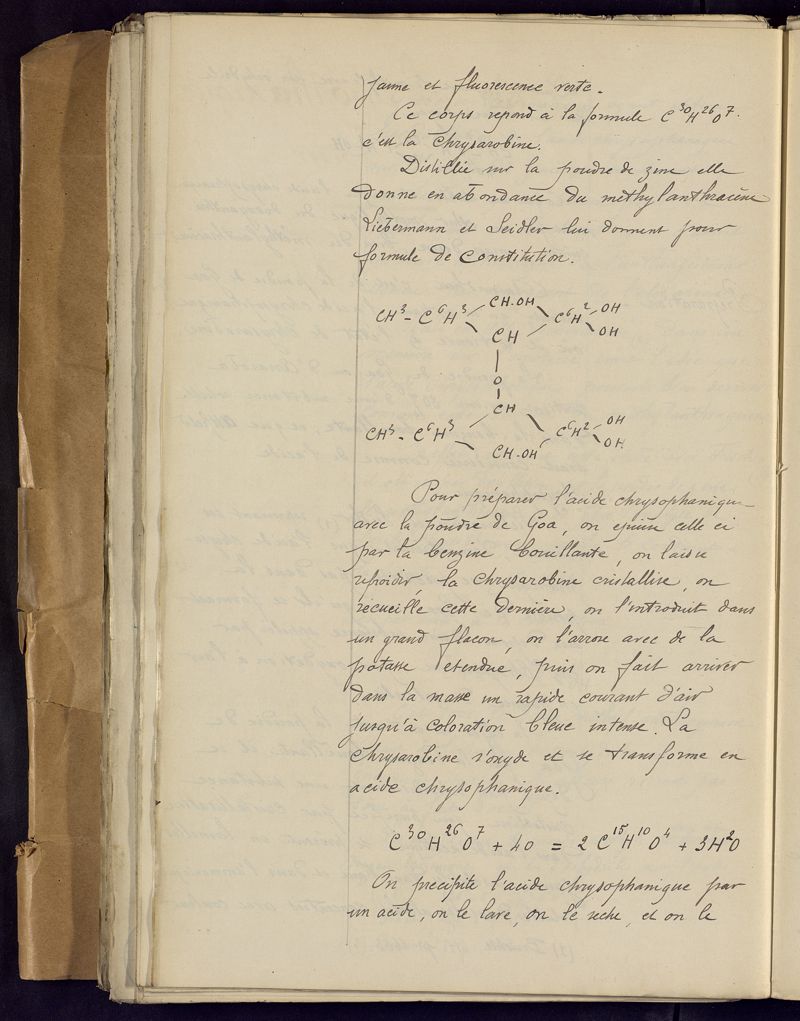 jaune et fluorescence verte.
Ce corps repond à la formule C³⁰H²⁶O⁷.
c'est la Chrysarobine.
Distillée sur la poudre de zinc elle
donne en abondance du méthylanthracène
Liebermann et Seidler lui donnent pour
formule de constitution.
CH³ - C⁶H³ CH.OH C⁶H² OH
CH OH
O
CH
CH³ - C⁶H³ C⁶H² OH
CH.OH OH
Pour préparer l'acide chrysophanique
avec la poudre de Goa, on épuise celle ci
par la benzine bouillante, on laisse
refroidir, la chrysarobine cristallise, on
recueille cette dernière, on l'introduit dans
un grand flacon, on l'arrose avec de la
potasse etendue, puis on fait arriver
dans la masse un rapide courant d'air
jusqu'à coloration bleue intense. La
Chrysarobine s'oxyde et se transforme en
acide chrysophanique.
C³⁰H²⁶O⁷ + 4O = 2C¹⁵H¹⁰O⁴ + 3H²O
On precipite l'acide chrysophanique par
un acide, on le lave, on le seche, et on le